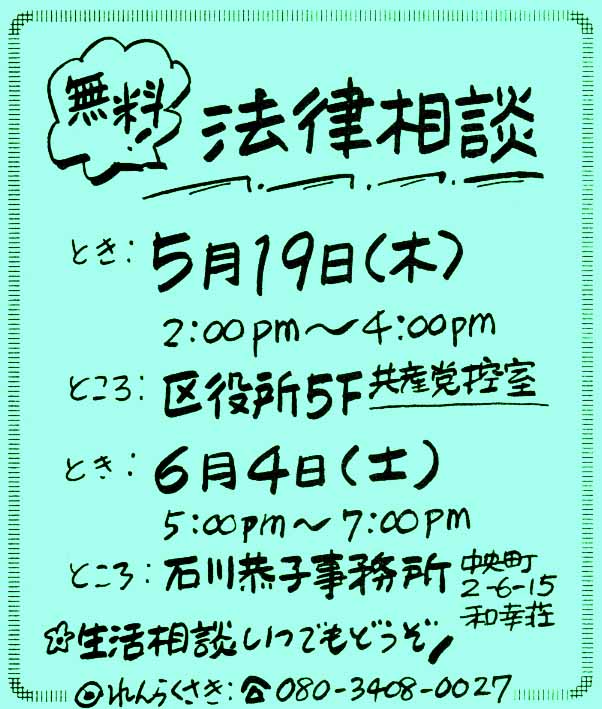 無料!
法律相談
とき: 5月19日(木)
2:00pm〜4:00pm
ところ: 区役所5F 共産党控室
とき: 6月4日(土)
5:00pm〜7:00pm
ところ: 石川恭子事務所 中央町
2-6-15
和幸荘
☆生活相談いつでもどうぞ!
◎れんらくさき: ☎080-3408-0027